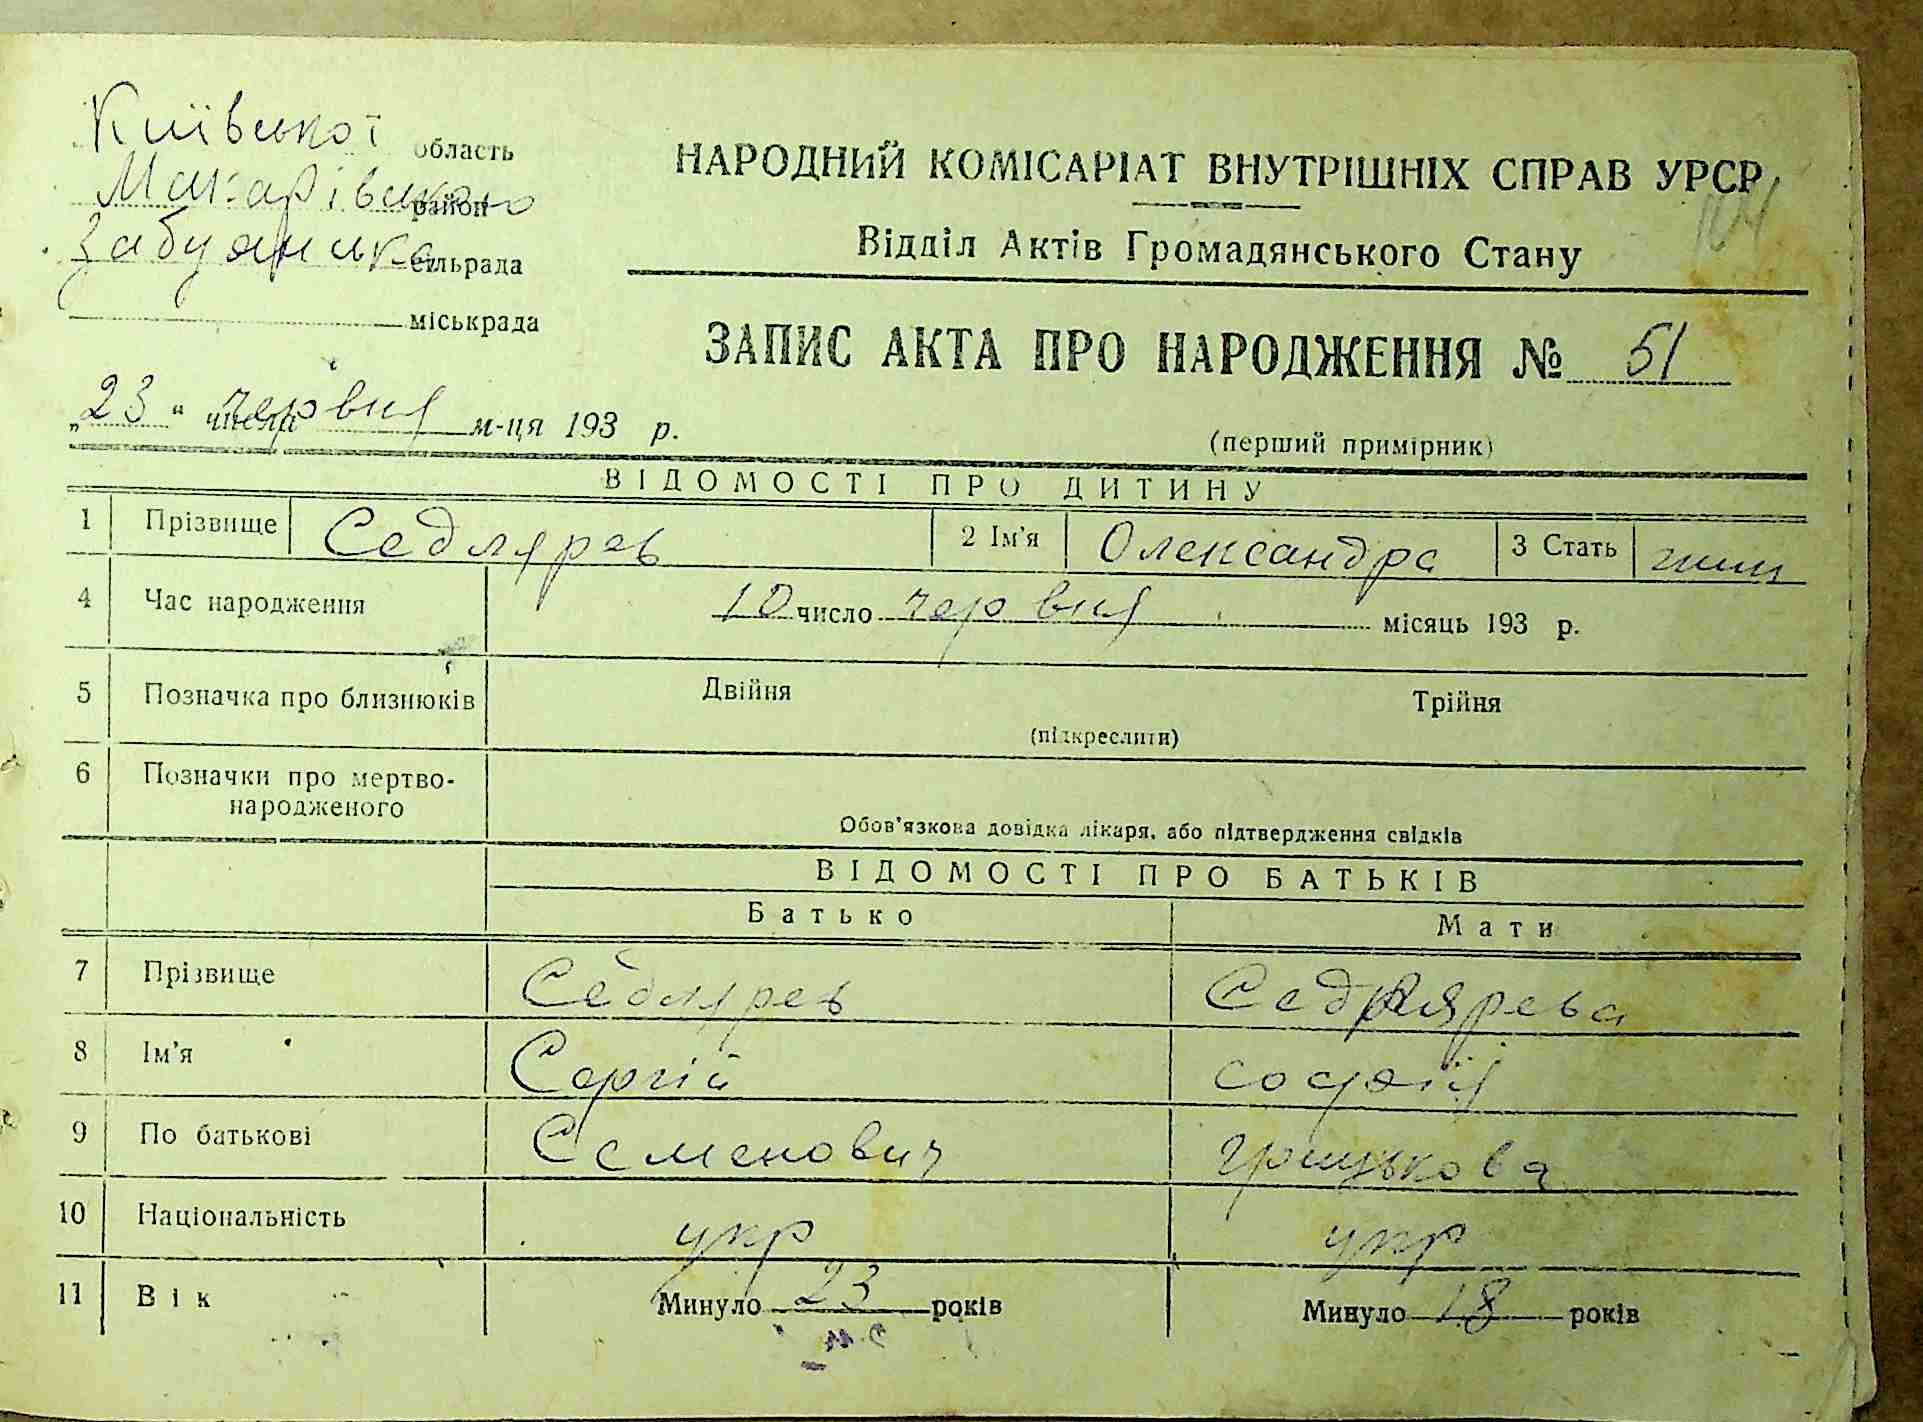 Київської область
Макарівського район
Забуянська сільрада
міськрада
НАРОДНИЙ КОМІСАРІАТ ВНУТРІШНІХ СПРАВ УРСР
104
Відділ Актів Громадянського Стану
ЗАПИС АКТА ПРО НАРОДЖЕННЯ № 51
„23“ числа червня м-ця 193 р.
(перший примірник)
ВІДОМОСТІ ПРО ДИТИНУ
1 Прізвище Седлярев 2 Ім'я Олександра 3 Стать жин
4 Час народження 10 число червня місяць 193 р.
5 Позначка про близнюків Двійня Трійня
(підкреслити)
6 Позначки про мертво-
народженого
Обов'язкова довідка лікаря, або підтвердження свідків
ВІДОМОСТІ ПРО БАТЬКІВ
Батько Мати
7 Прізвище Седлярев Седлярева
8 Ім'я Сергій Софія
9 По батькові Семенович Грицькова
10 Національність укр укр
11 Вік Минуло 23 років Минуло 18 років